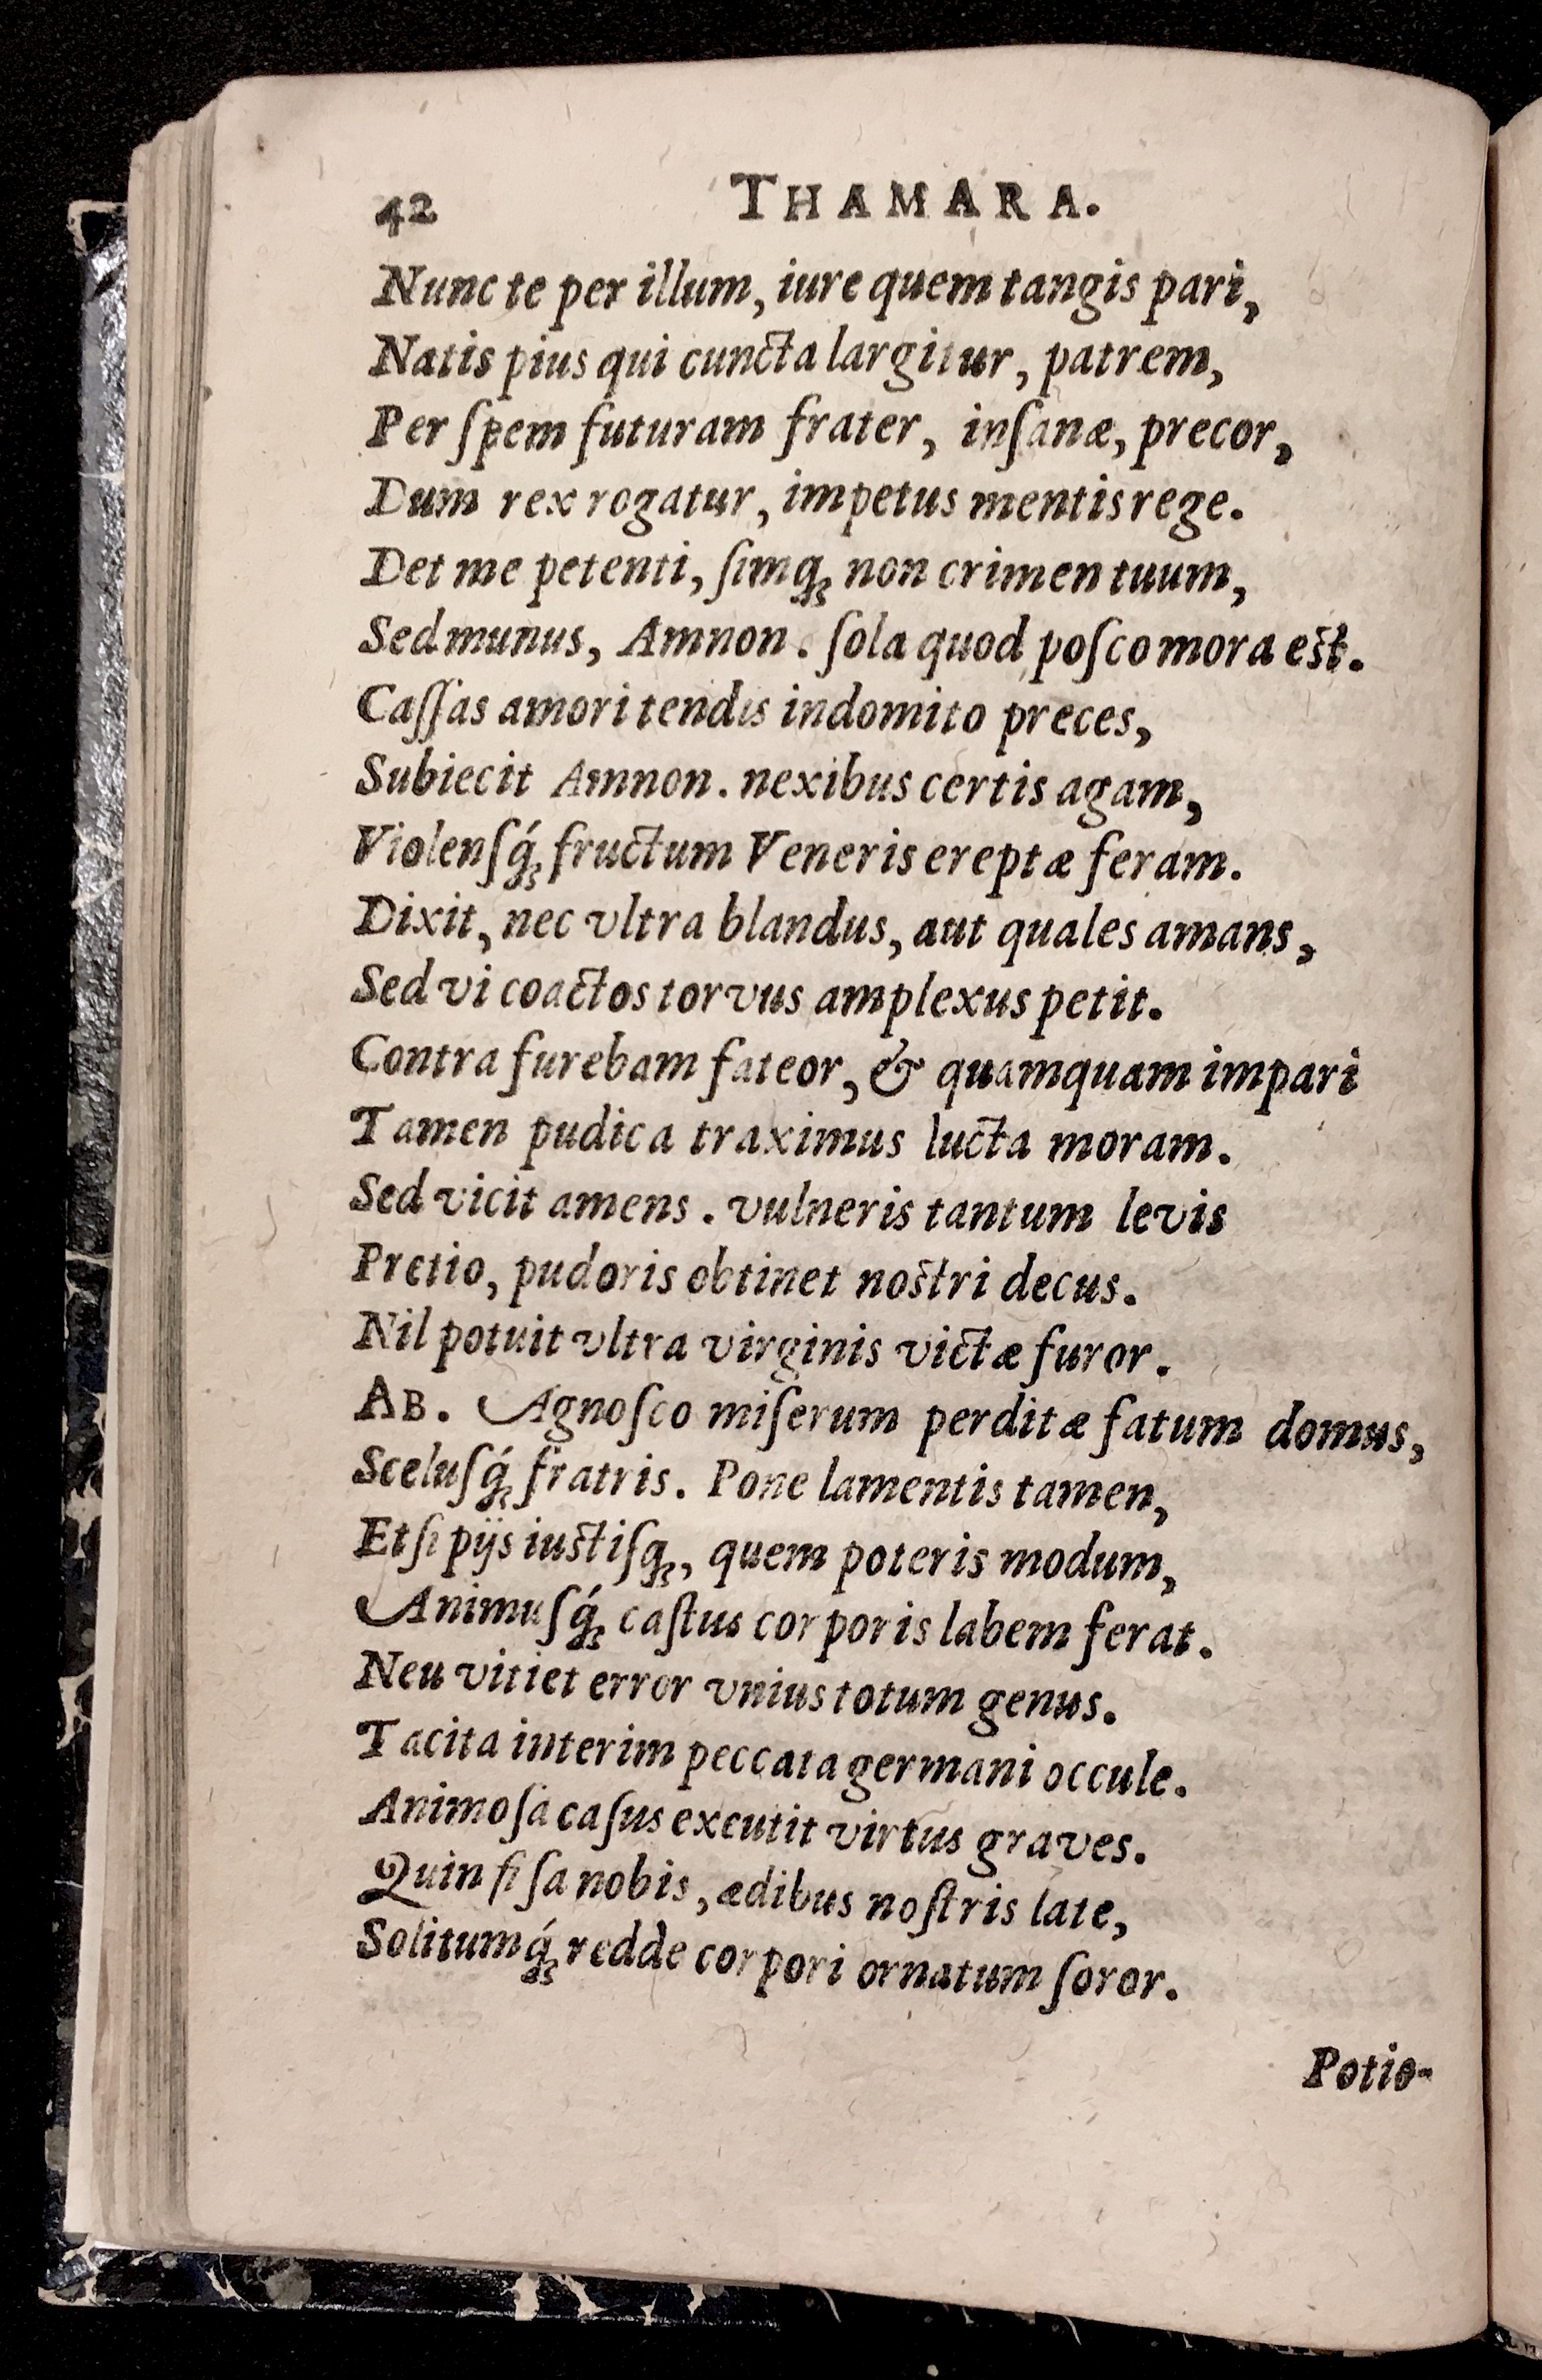 42 THAMARA.
Nunc te per illum, iure quem tangis pari,
Natis pius qui cuncta largitur, patrem,
Per ſpem futuram frater, inſanæ, precor,
Dum rex rogatur, impetus mentis rege.
Det me petenti, ſimq́ꝫ non crimen tuum,
Sed munus, Amnon. ſola quod poſco mora est.
Caſſas amori tendis indomito preces,
Subiecit Amnon. nexibus certis agam,
Violenſq́ꝫ fructum Veneris ereptæ feram.
Dixit, nec vltra blandus, aut quales amans,
Sed vi coactos torvus amplexus petit.
Contra furebam fateor, & quamquam impari
Tamen pudica traximus lucta moram.
Sed vicit amens. vulneris tantum levis
Pretio, pudoris obtinet nostri decus.
Nil potuit vltra virginis victæ furor.
AB. Agnoſco miſerum perditæ fatum domus,
Sceluſq́ꝫ fratris. Pone lamentis tamen,
Etſi pijs iustiſqꝫ, quem poteris modum,
Animuſq́ꝫ caſtus corporis labem ferat.
Neu vitiet error vnius totum genus.
Tacita interim peccata germani occule.
Animoſa caſus excutit virtus graves.
Quin fiſa nobis, ædibus noſtris late,
Solitumq́ꝫ redde corpori ornatum ſoror.
Potio-